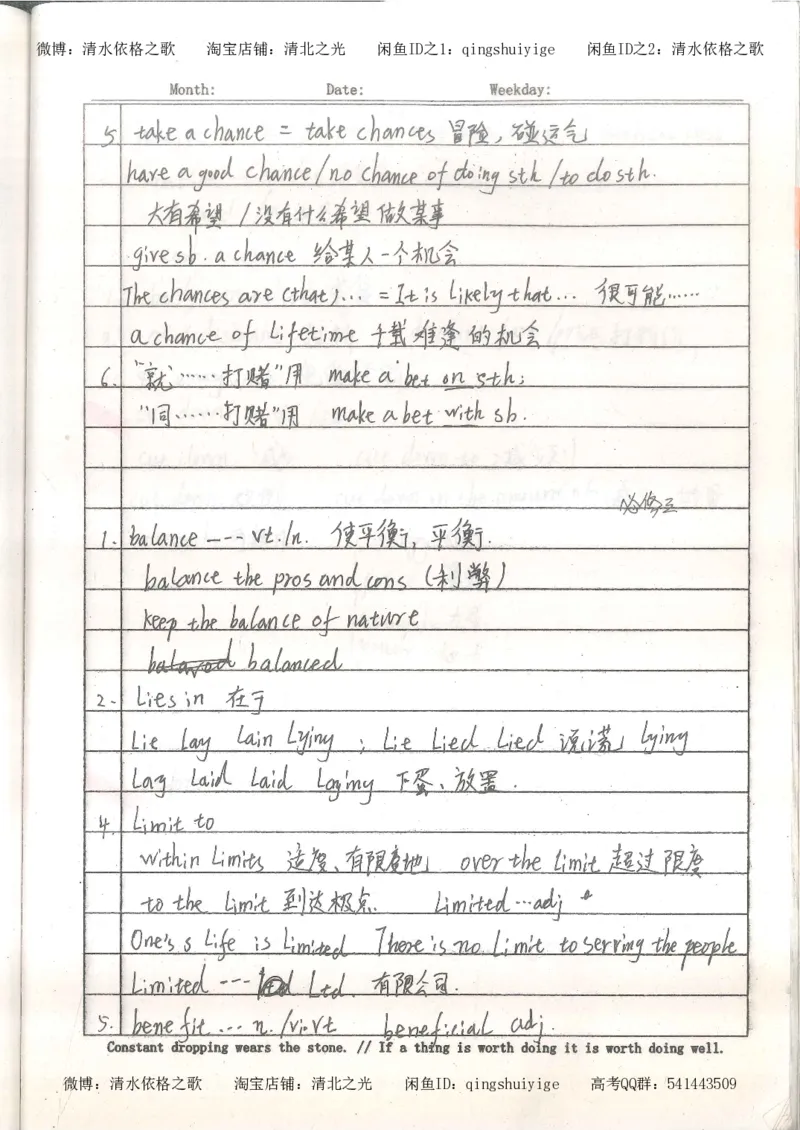 微博：清水依格之歌 淘宝店铺：清北之光 闲鱼ID之1：qingshuiyige 闲鱼ID之2：清水依格之歌
Month: Date: Weekday:
5 take a chance = take chances 冒险，碰运气
have a good chance/no chance of doing sth /to do sth.
大有希望 /没有什么希望 做某事
give sb. a chance 给某人一个机会
The chances are (that)... = It is likely that... 很可能……
a chance of lifetime 千载难逢的机会
6. "就……打赌"用 make a bet on sth;
"同……打赌"用 make a bet with sb.
必修五
1. balance --- vt./n. 使平衡，平衡.
balance the pros and cons (利弊)
keep the balance of nature
balanced
2. Lies in 在于
Lie Lay Lain Lying ; Lie Lied Lied 说谎 Lying
Lay Laid Laid 下蛋、放置.
4. Limit to
within Limits 适度、有限度地 over the limit 超过限度
to the Limit 到达极点 Limited …adj
One's s Life is Limited There is no Limit to serving the people
Limited --- Ltd. 有限公司.
5. benefit ... n. /vi.vt beneficial adj.
Constant dropping wears the stone. // If a thing is worth doing it is worth doing well.
微博：清水依格之歌 淘宝店铺：清北之光 闲鱼ID：qingshuiyige 高考QQ群：541443509